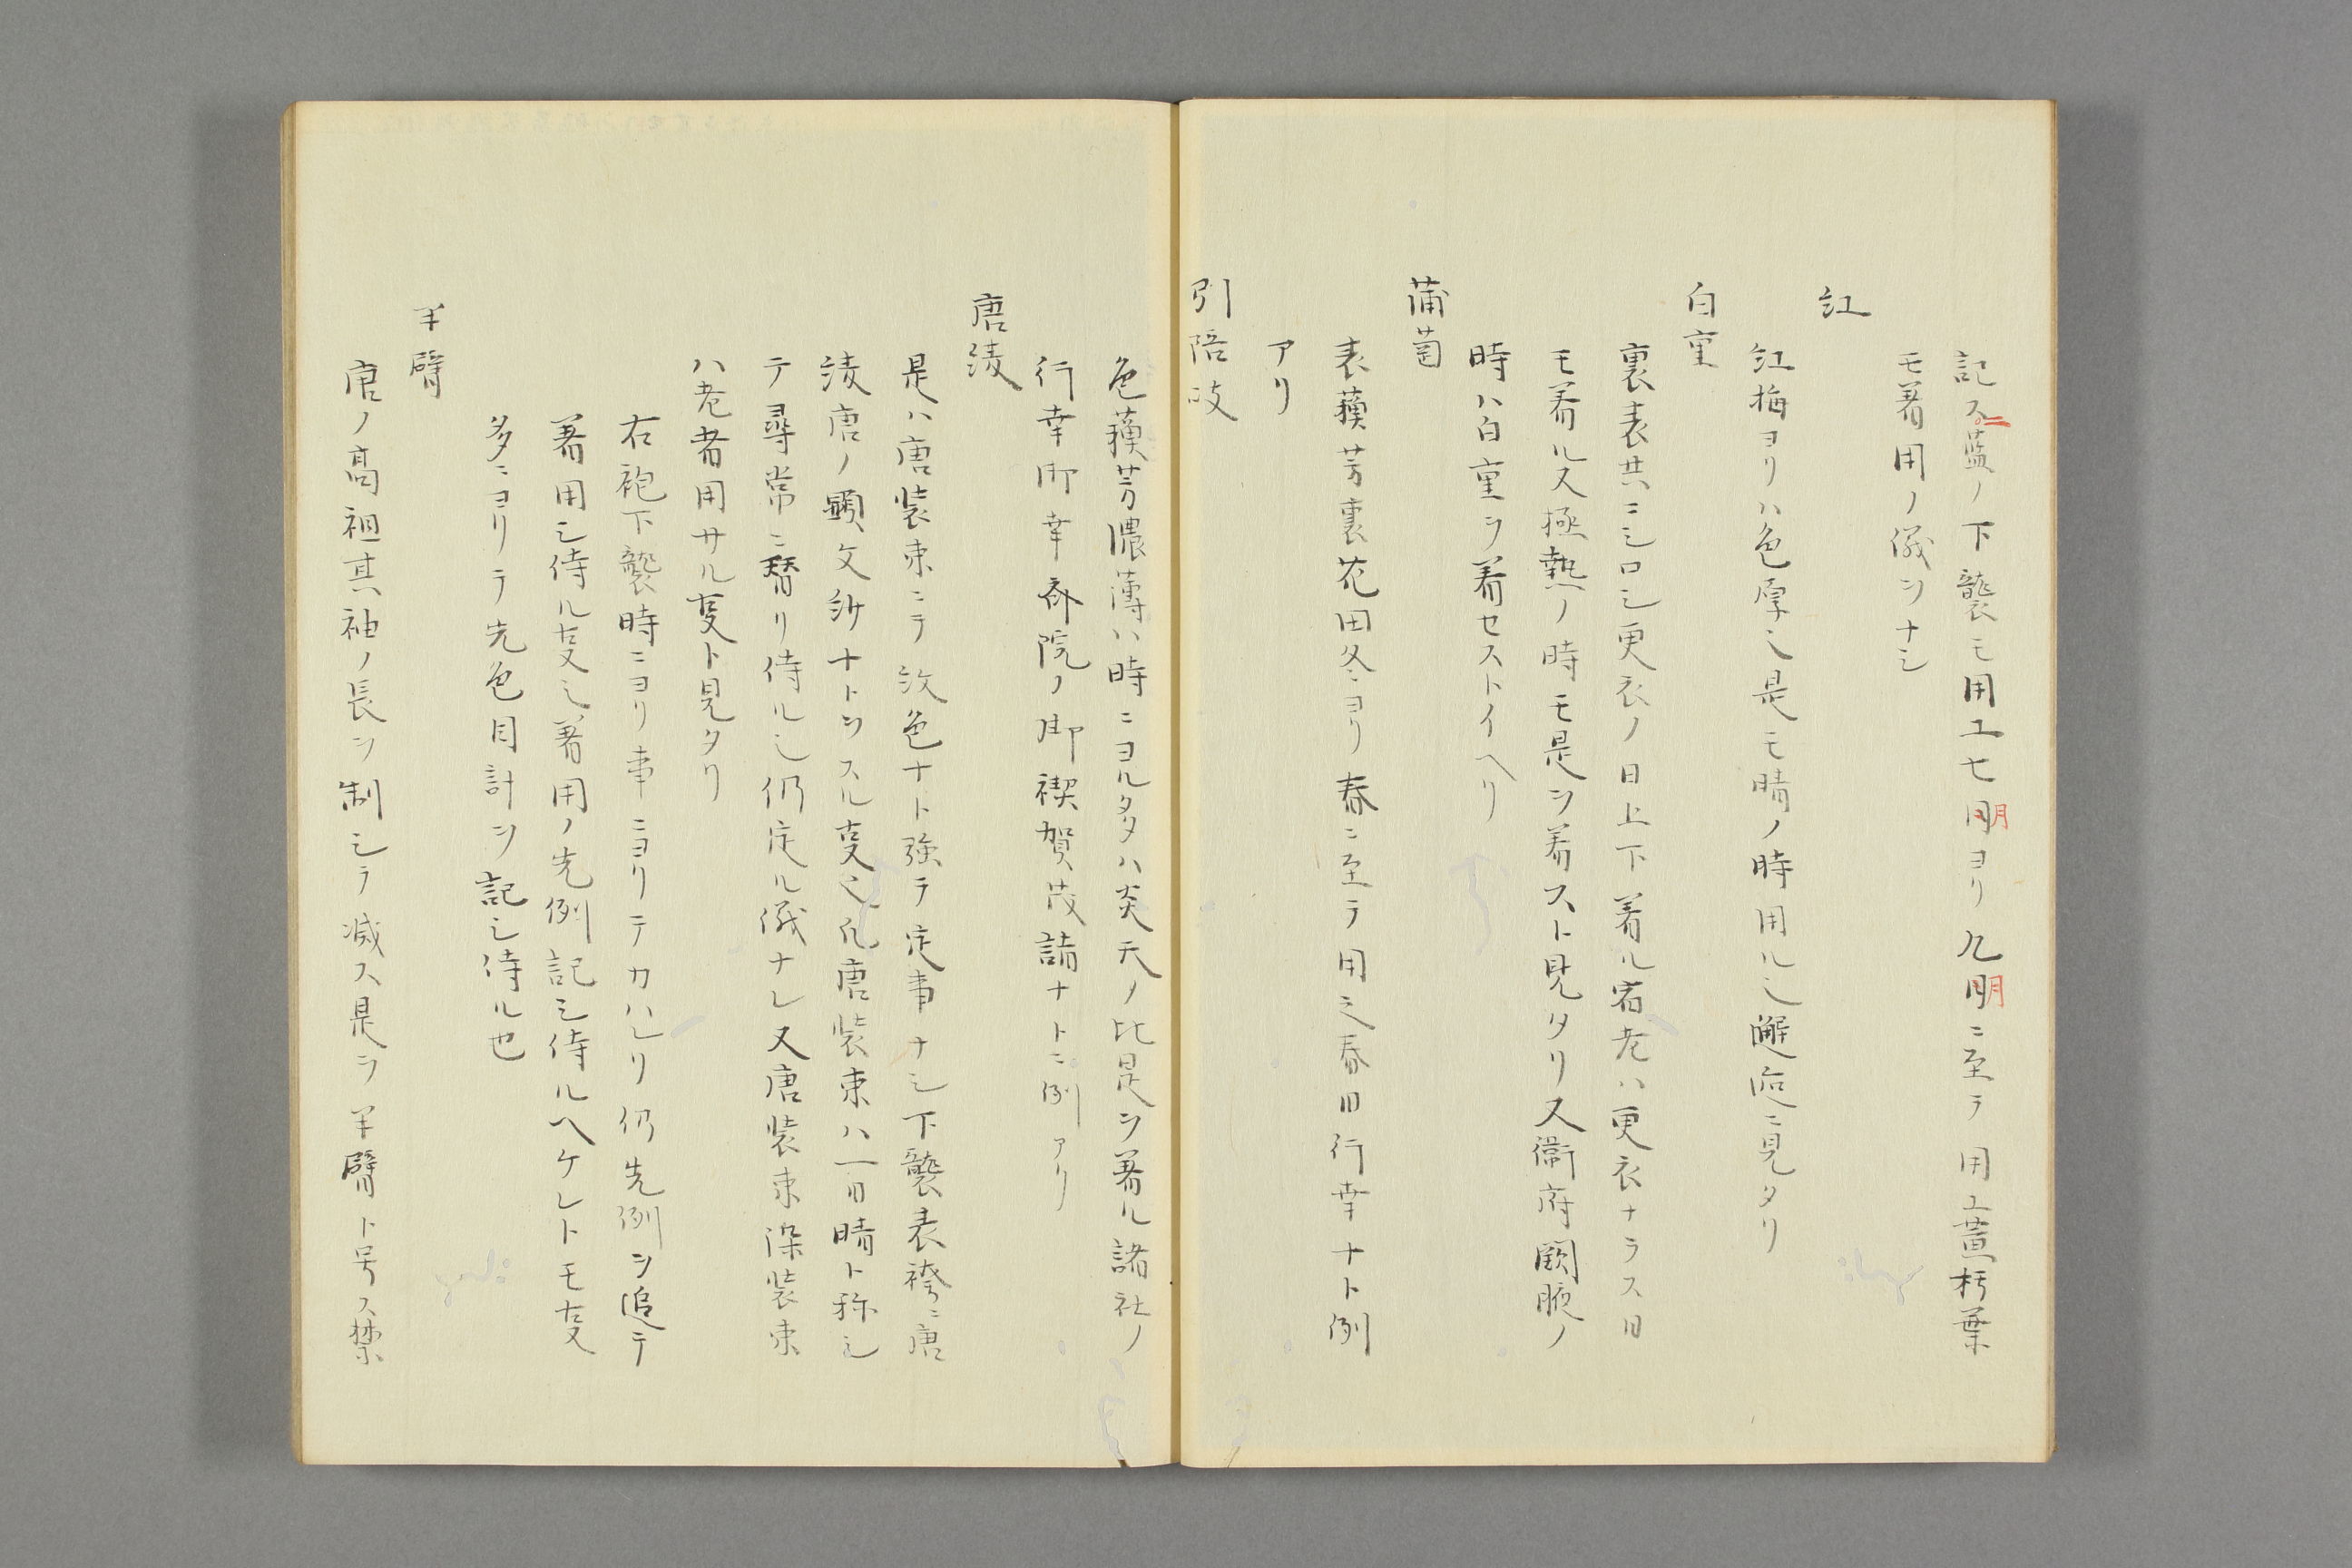 記ス藍ノ下襲モ用エ七明月ヨリ九明月ニ至テ用エ黄朽葉
モ着用ノ儀ンナシ
紅
紅梅ヨリハ色厚シ是モ晴ノ時用ル之邂逅ニ見タリ
白重
裏表共ニシロシ更衣ノ日上下着ル宿老ハ更衣ナラス日
モ着ル又極熱ノ時モ是ヲ着スト見タリ又衛府闕腋ノ
時ハ白重ヲ着セストイヘリ
蒲萄
表蘓芳裏花田冬ヨリ春ニ至テ用之春日行幸ナト例
アリ
引陪支
色蘓芳濃薄ハ時ニヨル多ハ炎天ノ比是ヲ着ル諸社ノ
行幸御幸斎院ノ御禊賀茂詣ナトニ例アリ
唐綾
是ハ唐装束ニテ汶色ナト強テ定事ナシ下襲表袴ニ唐
綾唐ノ顕文紗ナトヲスル事也凡唐装束ハ一日晴ト称シ
テ尋常ニ替リ侍ル之仍定ル儀ナレ又唐装束染装束
ハ老者用サル事ト見タリ
右袍下襲時ニヨリ事ニヨリテカハレリ仍先例ヲ追テ
着用シ侍ル事之着用ノ先例記シ侍ルヘケレトモ事
多ニヨリテ先色目計ヲ記シ侍ル也
半臂
唐ノ高祖其袖ノ長ヲ制シテ減ス是ヲ半臂ト号ス禁